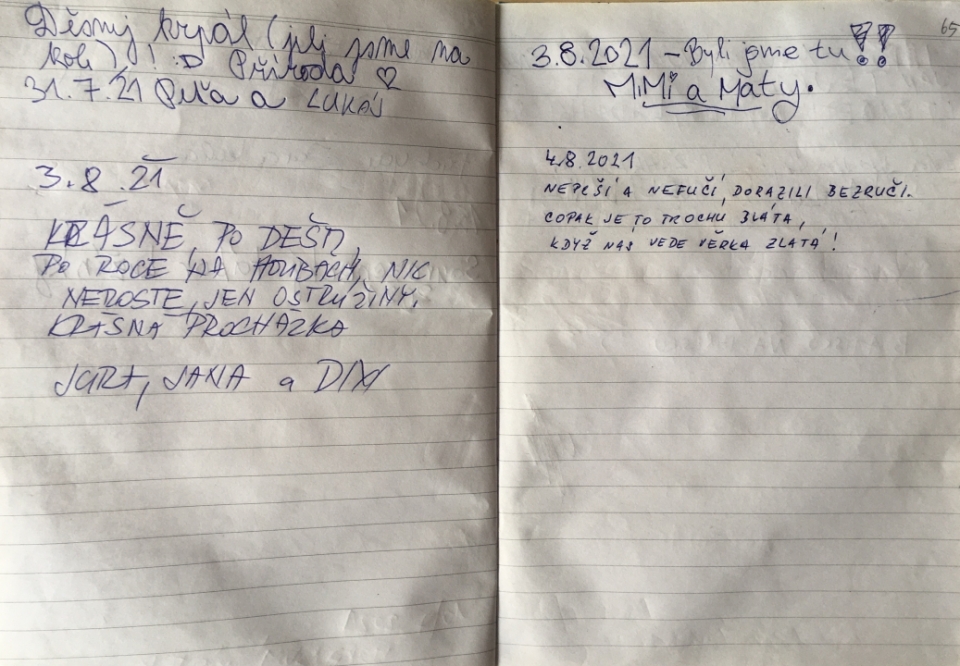 Děsnej krpál (jeli jsme na
kole)!! :D Příroda ♡
31.7.21 Péťa a LUKÁŠ
3.8.21
KRÁSNĚ, PO DEŠTI,
PO ROCE NA HOUBÁCH, NIC
NEROSTE, JEN OSTRUŽINY.
KRÁSNÁ PROCHÁZKA
JANA a DIXI
65
3.8.2021 – Byli jsme tu !!
MiMi a Maty.
4.8.2021
NEPRŠÍ A NEFUČÍ, DORAZILI BEZRUČI.
COPAK JE TO TROCHU BLÁTA,
KDYŽ NÁS VEDE VĚRKA ZLATÁ!